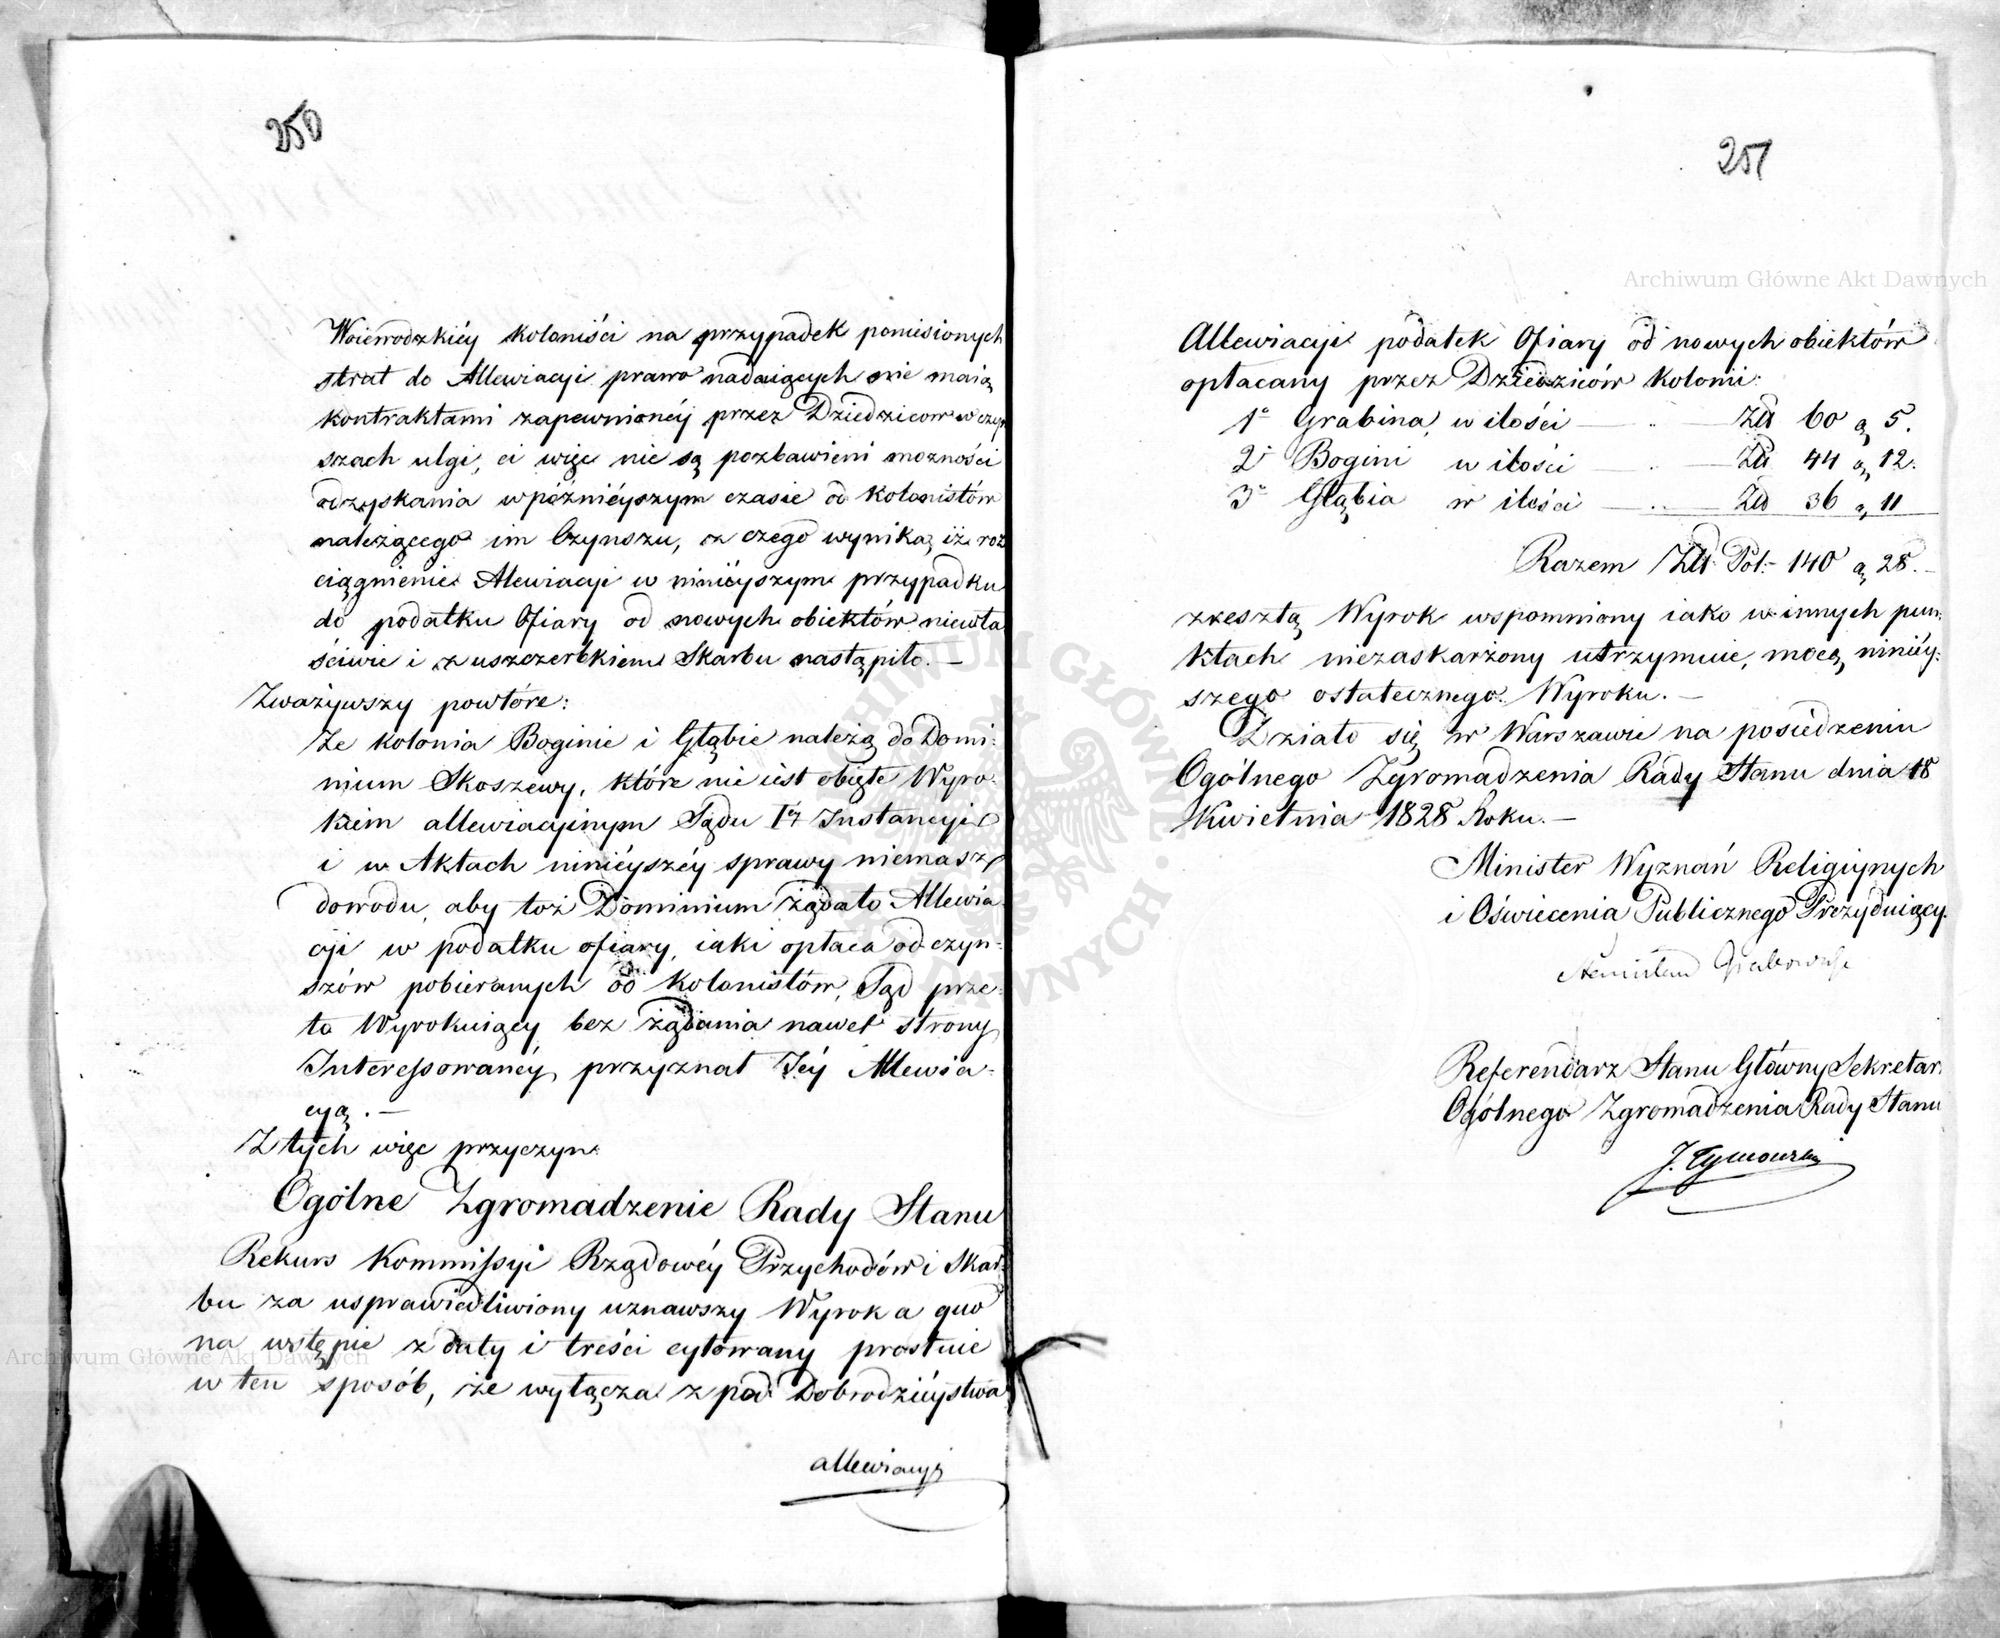 250
Woiewodzkiéy koloniści na przypadek poniesionych
strat do Allewiacyi prawo nadaiących nie maią
kontraktami zapewnionéj przez Dziedziców w czyn
szach ulgi, ci więc nie są pozbawieni możności
odzyskania w późniéyszym czasie od kolonistów
należącego im Czynszu, z czego wynika, iż roz
ciągnienie Alewiacyi w niniéyszym przypadku
do podatku Ofiary od nowych obiektów niewła
ściwie i z uszczerbkiem Skarbu nastąpiło. —
Zważywszy powtóre:
Że kolonia Boginie i Głąbie należą do Domi:
nium Skoszewy, które nie iest obięte Wyro:
kiem allewiacyinym Sądu Iéy Instancyi
i w Aktach niniéyszéy sprawy niemasz
dowodu, aby toż Dominium żądało Allewia
cyi w podatku ofiary, iaki opłaca od czyn:
szów pobieranych od kolonistów, Sąd prze:
to Wyrokuiący bez żądania nawet strony
Interessowanéy przyznał Jéy Allewia-
cyą. —
Z tych więc przyczyn:
Ogólne Zgromadzenie Rady Stanu
Rekurs Kommissyi Rządowéy Przychodów i Skar:
bu za usprawiedliwiony uznawszy Wyrok a quo
na wstępie z daty i treści cytowany prostuie
w ten sposób, że wyłącza z pod Dobrodzieystwa
allewiacyi
251
Allewiacyi podatek Ofiary od nowych obiektów
opłacany przez Dziedziców kolonii:
1° Grabina, w ilości — .. — Złł 60 g, 5.
2° Bogini w ilości — .. — Złł 44 g, 12.
3° Głąbia w ilości — .. — Złł 36 g, 11
Razem Złł. Pol:- 140 g, 28. -
zresztą Wyrok wspomniony iako w innych pun:
ktach niezaskarżony utrzymuie, mocą niniéy:
szego ostatecznego Wyroku. —
Działo się w Warszawie na posiedzeniu
Ogólnego Zgromadzenia Rady Stanu dnia 18
Kwietnia 1828 Roku. —
Minister Wyznań Religiynych
i Oświecenia Publicznego Prezyduiący.
Stanisław Grabowski
Referendarz Stanu Główny Sekretarz
Ogólnego Zgromadzenia Rady Stanu
J. Tymowski
Archiwum Główne Akt Dawnych
Archiwum Główne Akt Dawnych
ARCHIWUM GŁÓWNE AKT DAWNYCH